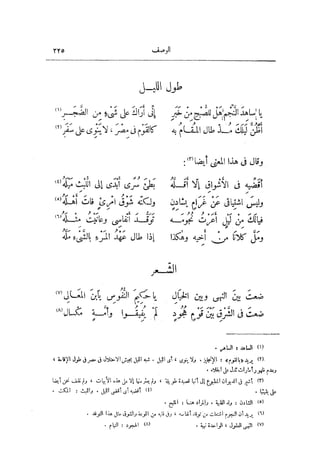 الوصف
٢٢٥
طول الليل
يا ساهد النجم هل للصبح من خبر
إني أراك على شيء من الضجر (١)
أظن ليلك مذ طال المقام به
كالقوم في مصر، لا ينوي على سفر (٢)
وقال في هذا المعنى أيضا (٣):
أقضيه في الأشواق إلا أقله
بطئ سرى أبدى إلى اللبث ميله (٤)
وليس اشتياقي عن غرام بشادن
ولكنه شوق امرئ فات أهله (٥)
فيالك من ليل أعرت نجومه
توقد أنفاسي وعانيت مثله (٦)
ومل كلانا من أخيه وهكذا
إذا طال عهد المرء بالشيء مله
الشعر
ضعت بين النهى وبين الخيال
يا حكيم النفوس يابن المعالي (٧)
ضعت في الشرق بين قوم هجود
لم يفيقوا وأمة مكسال (٨)
(١) الساهد : الساهر .
(٢) يريد «بالقوم» : الإنجليز . ولا ينوى ، أى الليل . شبه الليل بجيش الاحتلال في مصر في طول الإقامة ،
وعدم ظهور أمارات تدل على الجلاء .
(٣)
(٤) أقضيه أى أقضى الليل . واللبث : المكث .
(٥) الشادن : ولد الظبية . والمراد هنا : المليح .
(٦) يريد أن النجوم
(٧) النهى العقول ؛ الواحدة نهية .
(٨) الهجود : النيام .